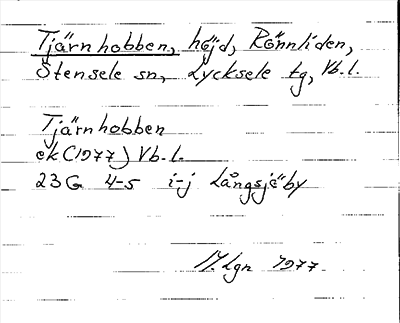 Tjärnhobben, höjd, Rönnliden,
Stensele sn, Lycksele tg, Vb.l.
Tjärnhobben
ek (1977) Vb.l.
23G 4-5 i-j Långsjöby
Lgn 1977